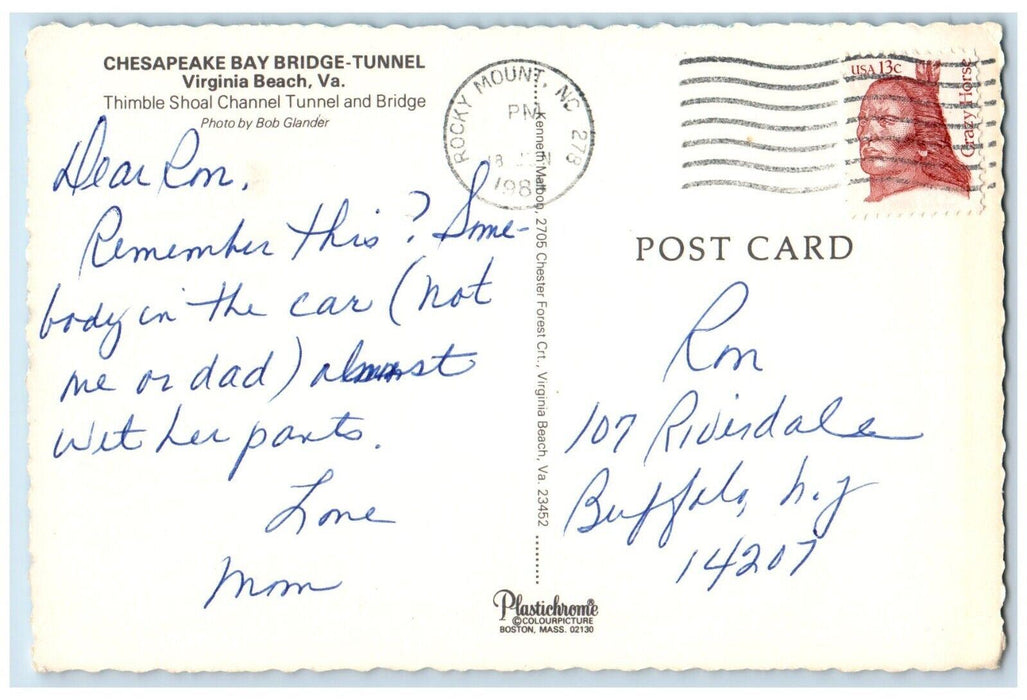 CHESAPEAKE BAY BRIDGE-TUNNEL
Virginia Beach, Va.
Thimble Shoal Channel Tunnel and Bridge
Photo by Bob Glander
Dear Ron,
Remember this? Some-
body in the car (not
me or dad) almost
wet her pants.
Love
Mom
ROCKY MOUNT, NC 278
PM
198
USA 13c
Crazy Horse
Kenneth Malbon, 2705 Chester Forest Crt., Virginia Beach, Va. 23452
POST CARD
Ron
107 Riverdale
Buffalo, n.y
14207
Plastichrome®
©COLOURPICTURE
BOSTON, MASS. 02130